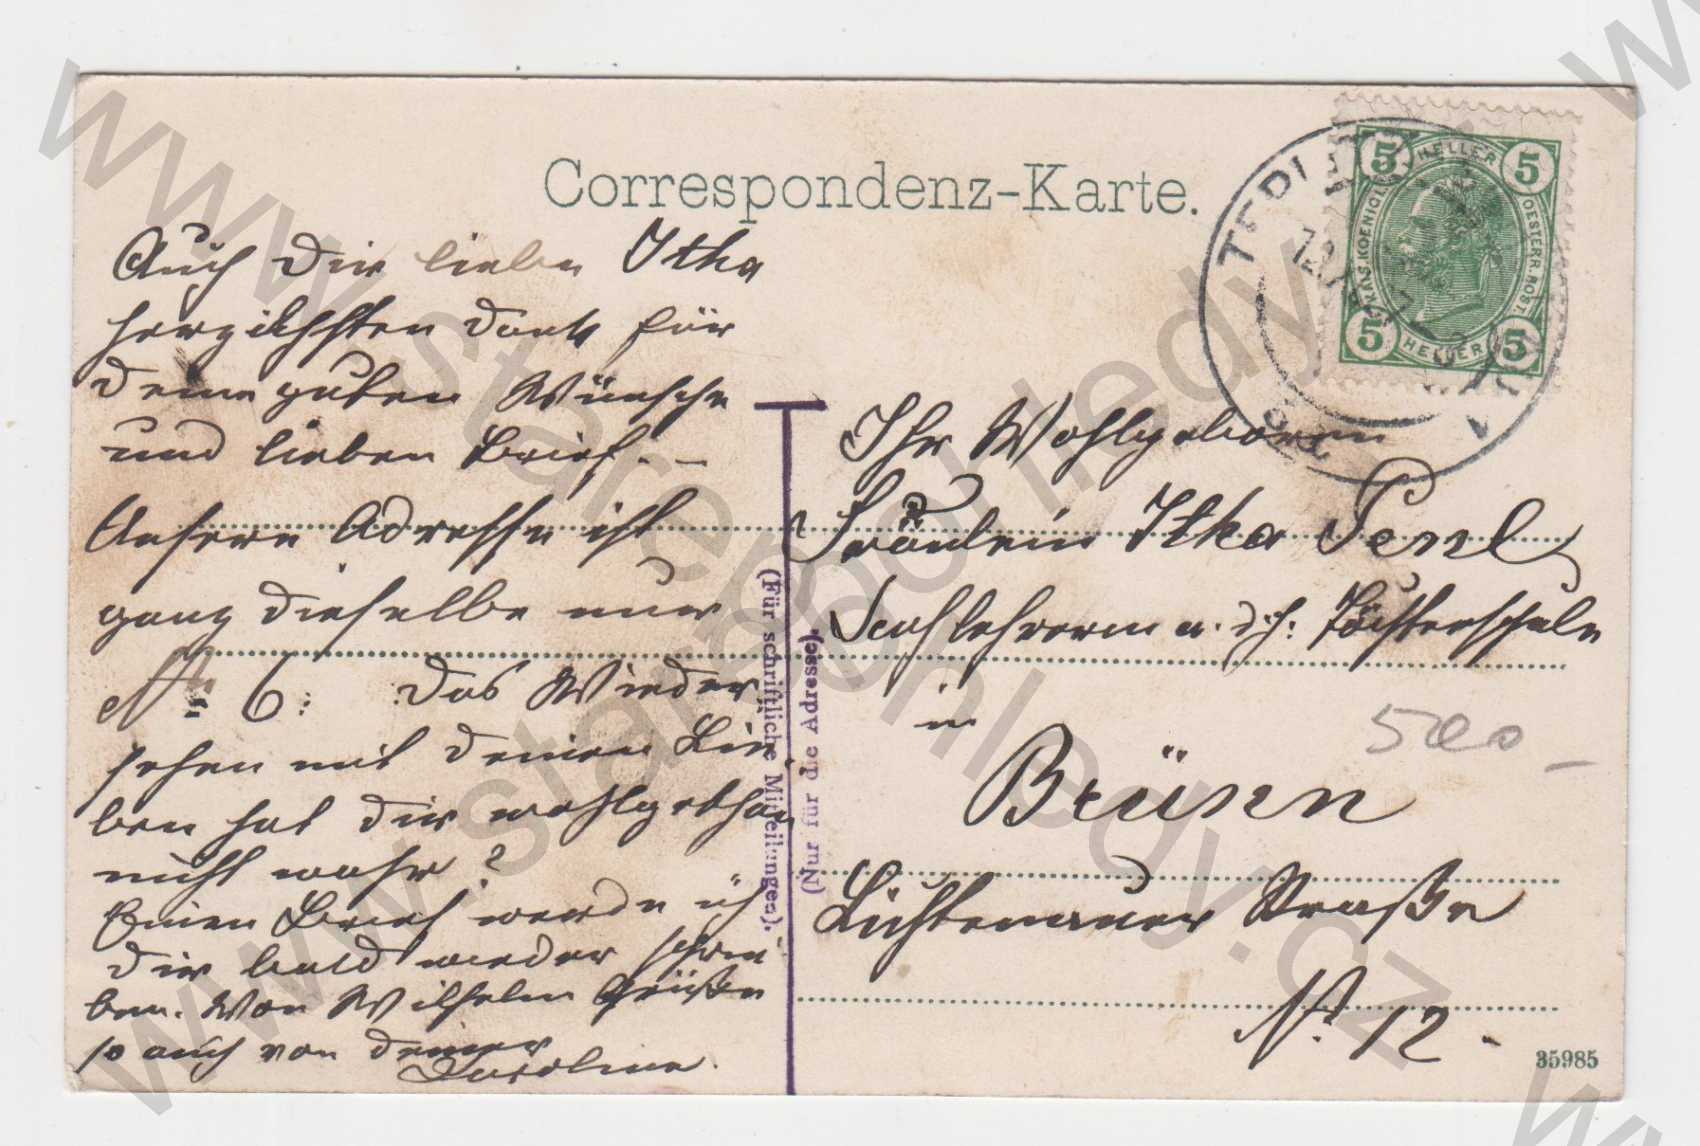 Correspondenz-Karte.
Auch Dir liebe Itka
herzlichsten Dank für
Deine guten Wünsche
und lieben Brief. –
Unsere Adresse ist
ganz dieselbe nur
No 6. Das Wieder-
sehen mit Deinen Lie-
ben hat Dir wohlgethan
nicht wahr?
Einen Brief werde ich
Dir bald wieder schrei-
ben. Von Wilhelm Grüße
so auch von Deiner
Caroline.
(Für schriftliche Mitteilungen).
(Nur für die Adresse).
5 HELLER 5
KAIS. KOENIGL. OESTERR. POST
5 HELLER 5
Ihr Wohlgeboren
Fräulein Itka
Fachlehrerin a. d. h. Töchterschule
in
Brünn
500 –
Lichtenauer Straße
No 12.
35985
www.starepohledy.cz
www.starepohledy.cz